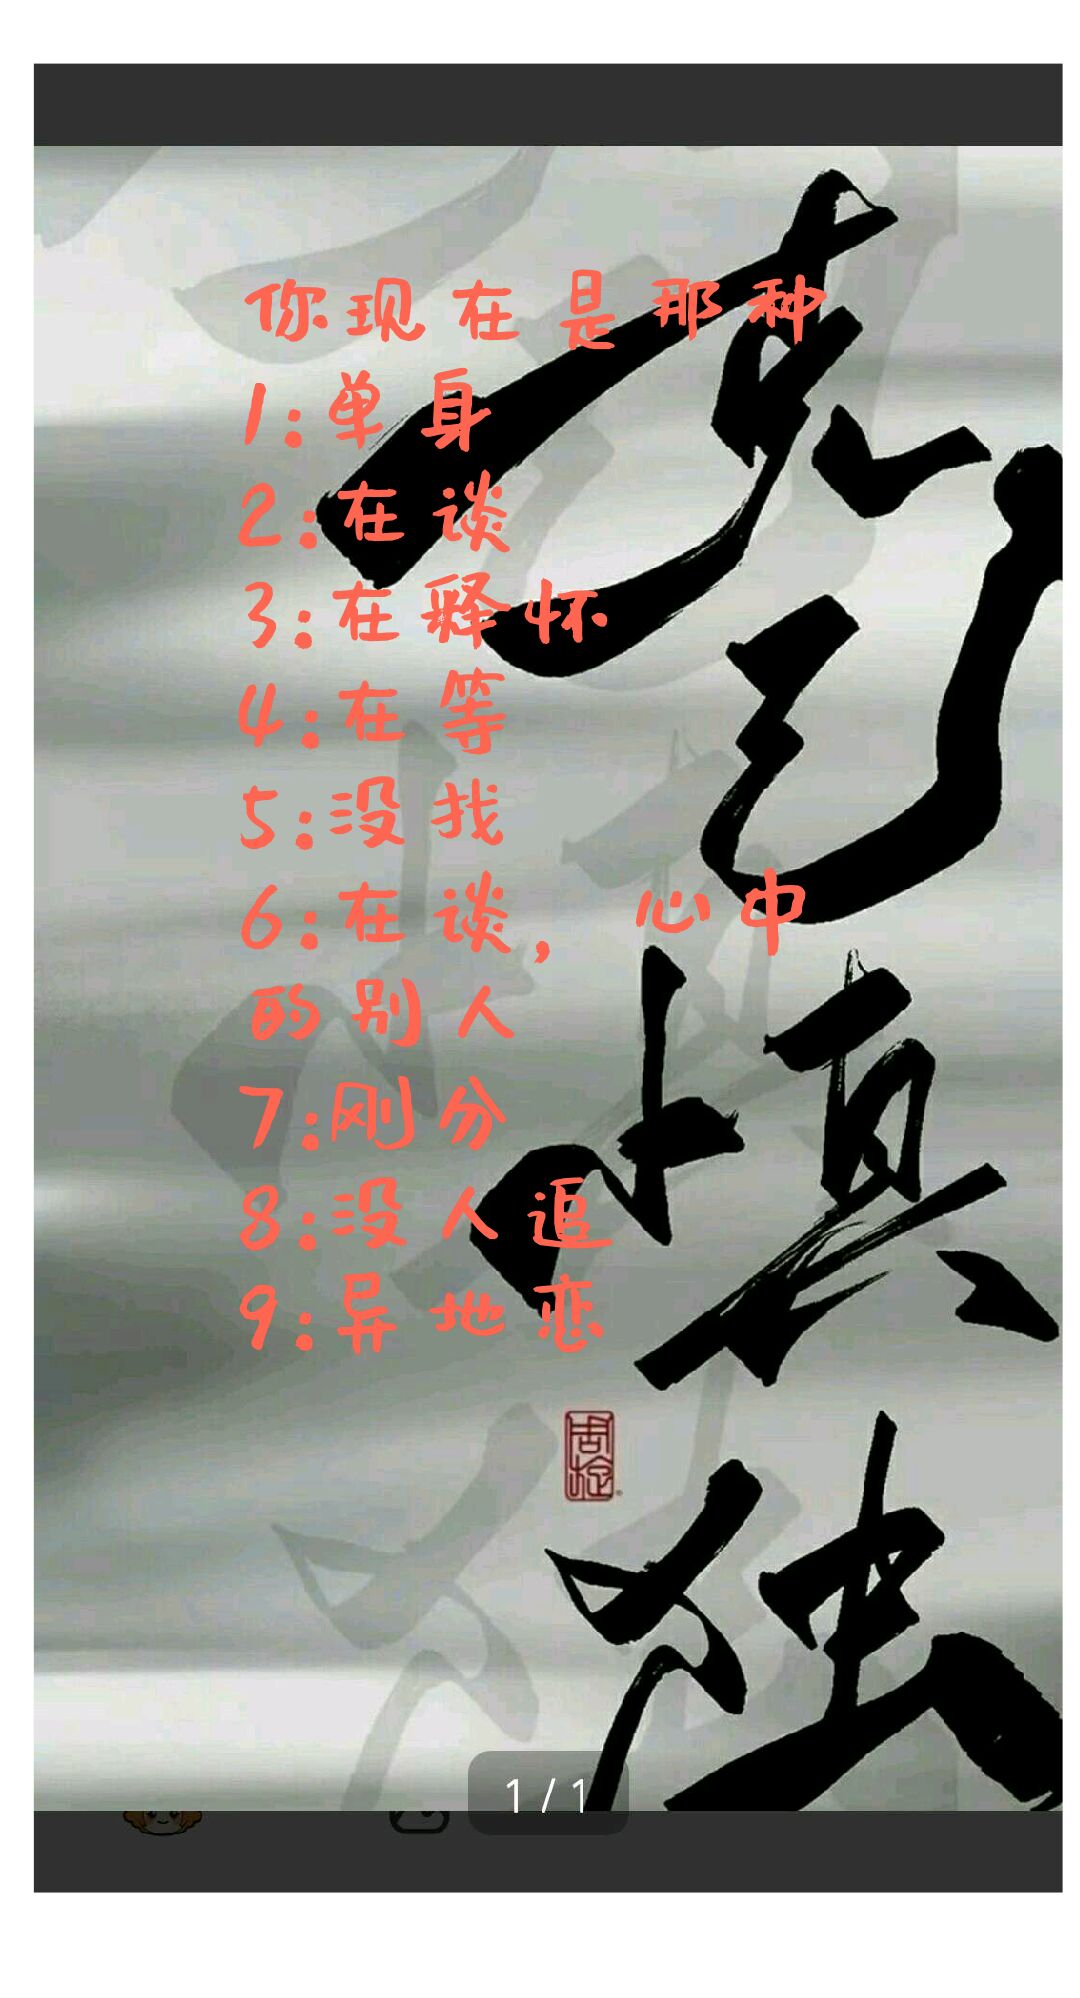 你现在是那种
1:单身
2:在谈
3:在释怀
4:在等
5:没找
6:在谈，心中
的别人
7:刚分
8:没人追
9:异地恋
克己
慎
独
1/1